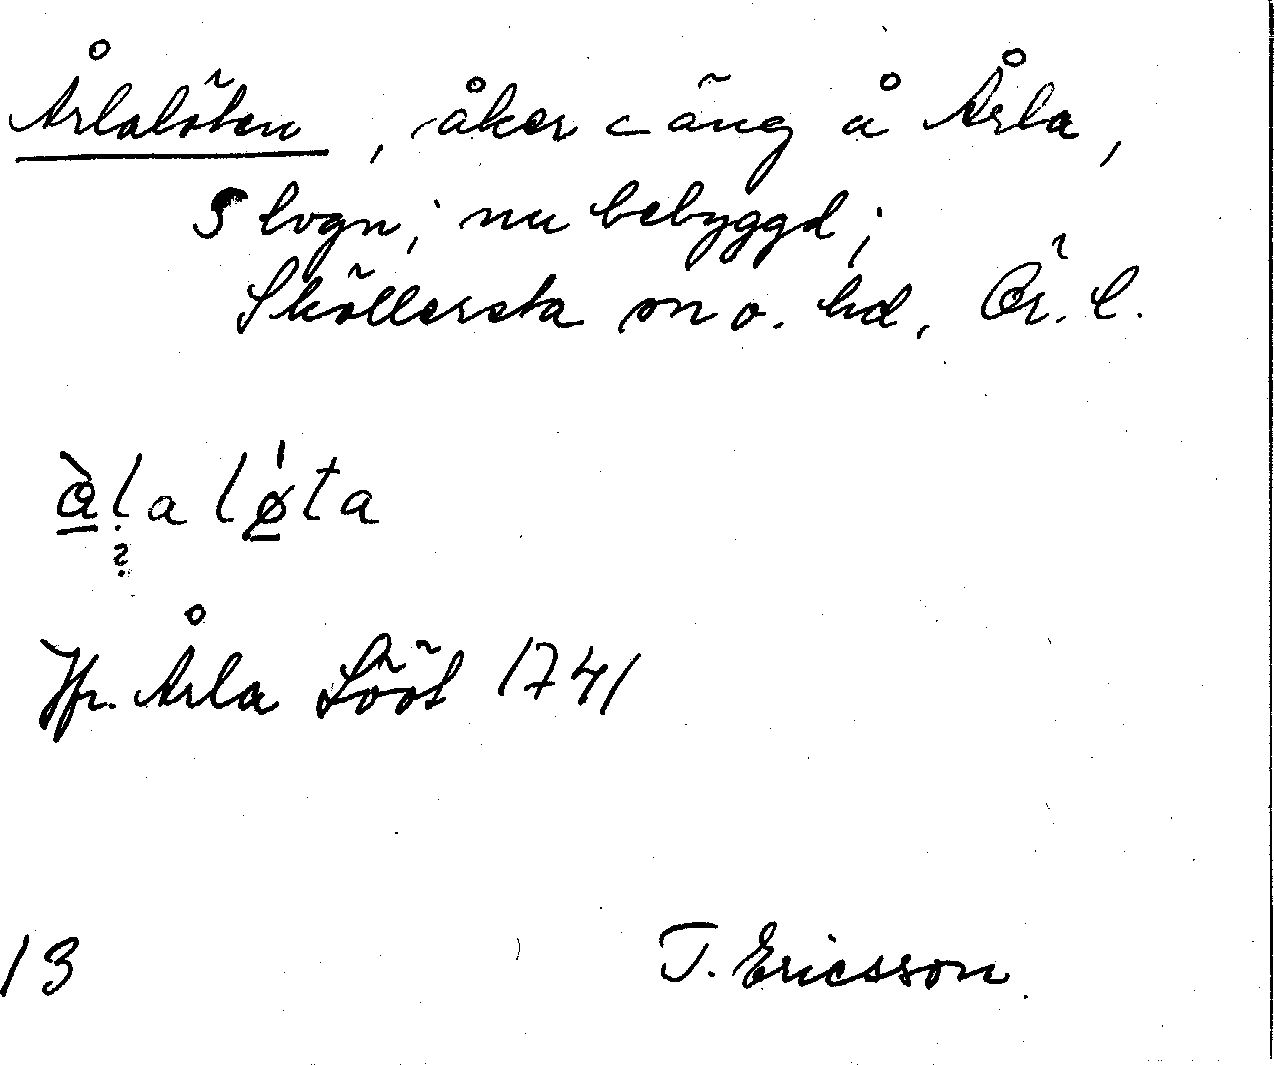 Årlalöten, åker o äng å Årla,
S logn; nu bebyggd;
Sköllersta sn o. hd, Ör. l.
ålaløta
?
Jfr. Årla Lööt 1741
13
T. Ericsson